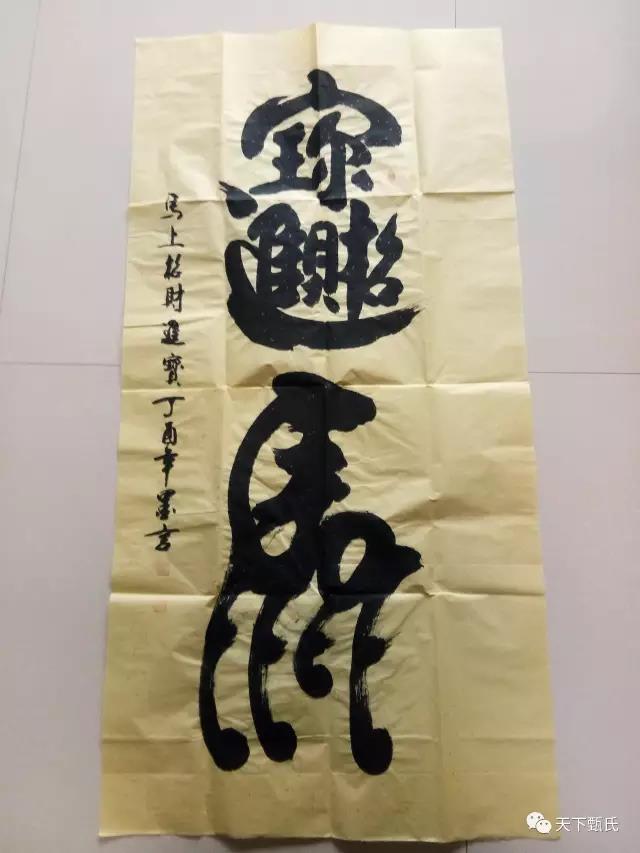 招財進寶
馬
馬上招財進寶丁酉年墨言
天下甄氏